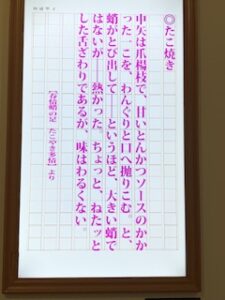 ◎たこ焼き
中矢は爪楊枝で、甘いとんかつソースのかか
った一こを、わんぐりと口へ抛りこむ。と、
蛸がとび出して――というほど、大きい蛸で
はないが――熱かった。ちょっと、ねたッと
した舌ざわりであるが、味はわるくない。
【春情蛸の足　たこやき多情】より